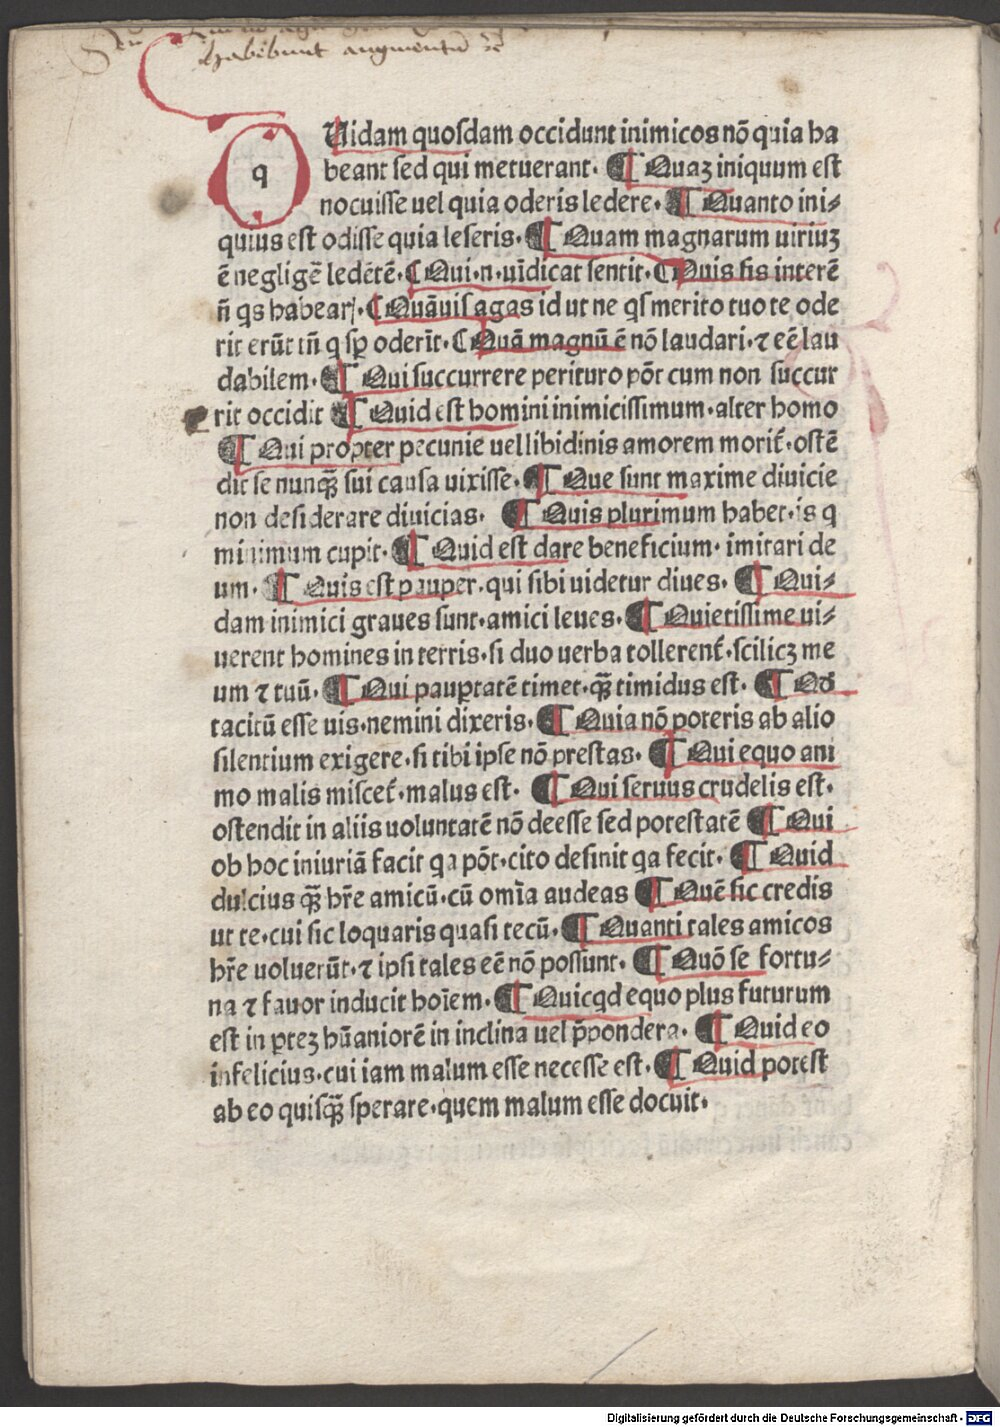 habebunt augmentū
q
Uidam quosdam occidunt inimicos nō quia ha
beant sed qui metuerant. ¶ Quaʒ iniquum est
nocuisse uel quia oderis ledere. ¶ Quanto ini⸗
quius est odisse quia leseris. ¶ Quam magnarum uiriuʒ
ē neglige̅ ledētē. ¶ Qui .n. uīdicat sentit. ¶ Quis sis interē
n̄ qs habearꝭ. ¶ Quāuis agas id ut ne qs merito tuo te ode
rit erūt tn̄ q sꝑ oderīt. ¶ Quā magnū ē nō laudari. ⁊ eē lau
dabilem. ¶ Qui succurrere perituro pōt cum non succur
rit occidit ¶ Quid est homini inimicissimum. alter homo
¶ Qui propter pecunie uel libidinis amorem morit̄. ostē
dit se nunqꝫ sui causa uixisse. ¶ Que sunt maxime diuicie
non desiderare diuicias. ¶ Quis plurimum habet. is q
minimum cupit. ¶ Quid est dare beneficium. imitari de
um. ¶ Quis est pauper. qui sibi uidetur diues. ¶ Qui⸗
dam inimici graues sunt. amici leues. ¶ Quietissime ui⸗
uerent homines in terris. si duo uerba tollerent̄. scilicʒ me
um ⁊ tuū. ¶ Qui pauꝑtatē timet. qꝫ timidus est. ¶ Qđ
tacitū esse uis. nemini dixeris. ¶ Quia nō poteris ab alio
silentium exigere. si tibi ipse nō prestas. ¶ Qui equo ani
mo malis miscet̄. malus est. ¶ Qui seruus crudelis est.
ostendit in aliis uoluntatē nō deesse sed potestatē ¶ Qui
ob hoc iniuriā facit qa pōt. cito desinit qa fecit. ¶ Quid
dulcius qꝫ hr̄e amicū. cū om̄ia audeas ¶ Quē sic credis
ut te. cui sic loquaris quasi tecū. ¶ Quanti tales amicos
hr̄e uoluerūt. ⁊ ipsi tales eē nō possunt. ¶ Quō se fortu⸗
na ⁊ fauor inducit hoīem. ¶ Quicqd equo plus futurum
est in ꝑteʒ hūaniorē in inclina uel p̄pondera. ¶ Quid eo
infelicius. cui iam malum esse necesse est. ¶ Quid potest
ab eo quisqꝫ sperare. quem malum esse docuit.
Digitalisierung gefördert durch die Deutsche Forschungsgemeinschaft - DFG